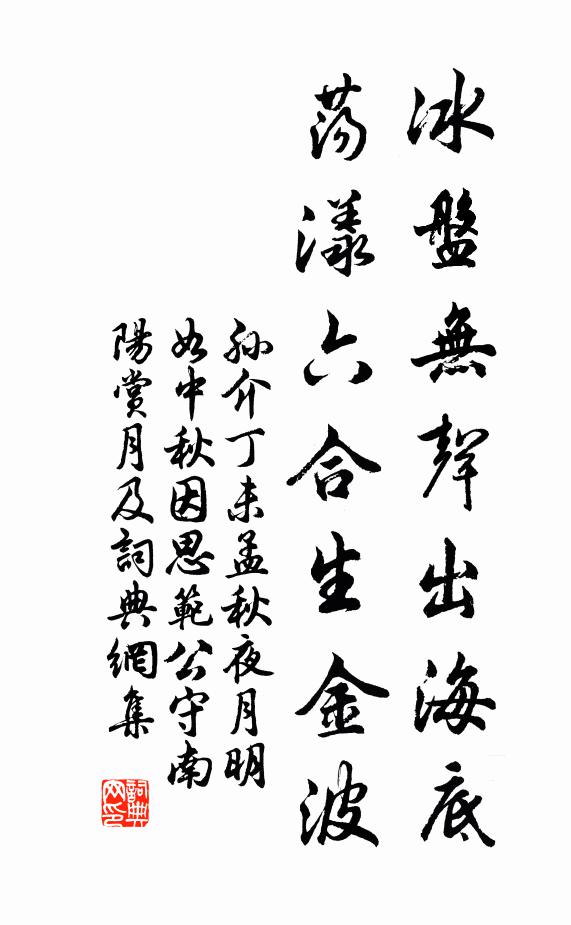 冰盤無聲出海底
蕩漾六合生金波
孫介丁未孟秋夜月明
如中秋因思範公守南
陽賞月及詞典網集
詞典
网印